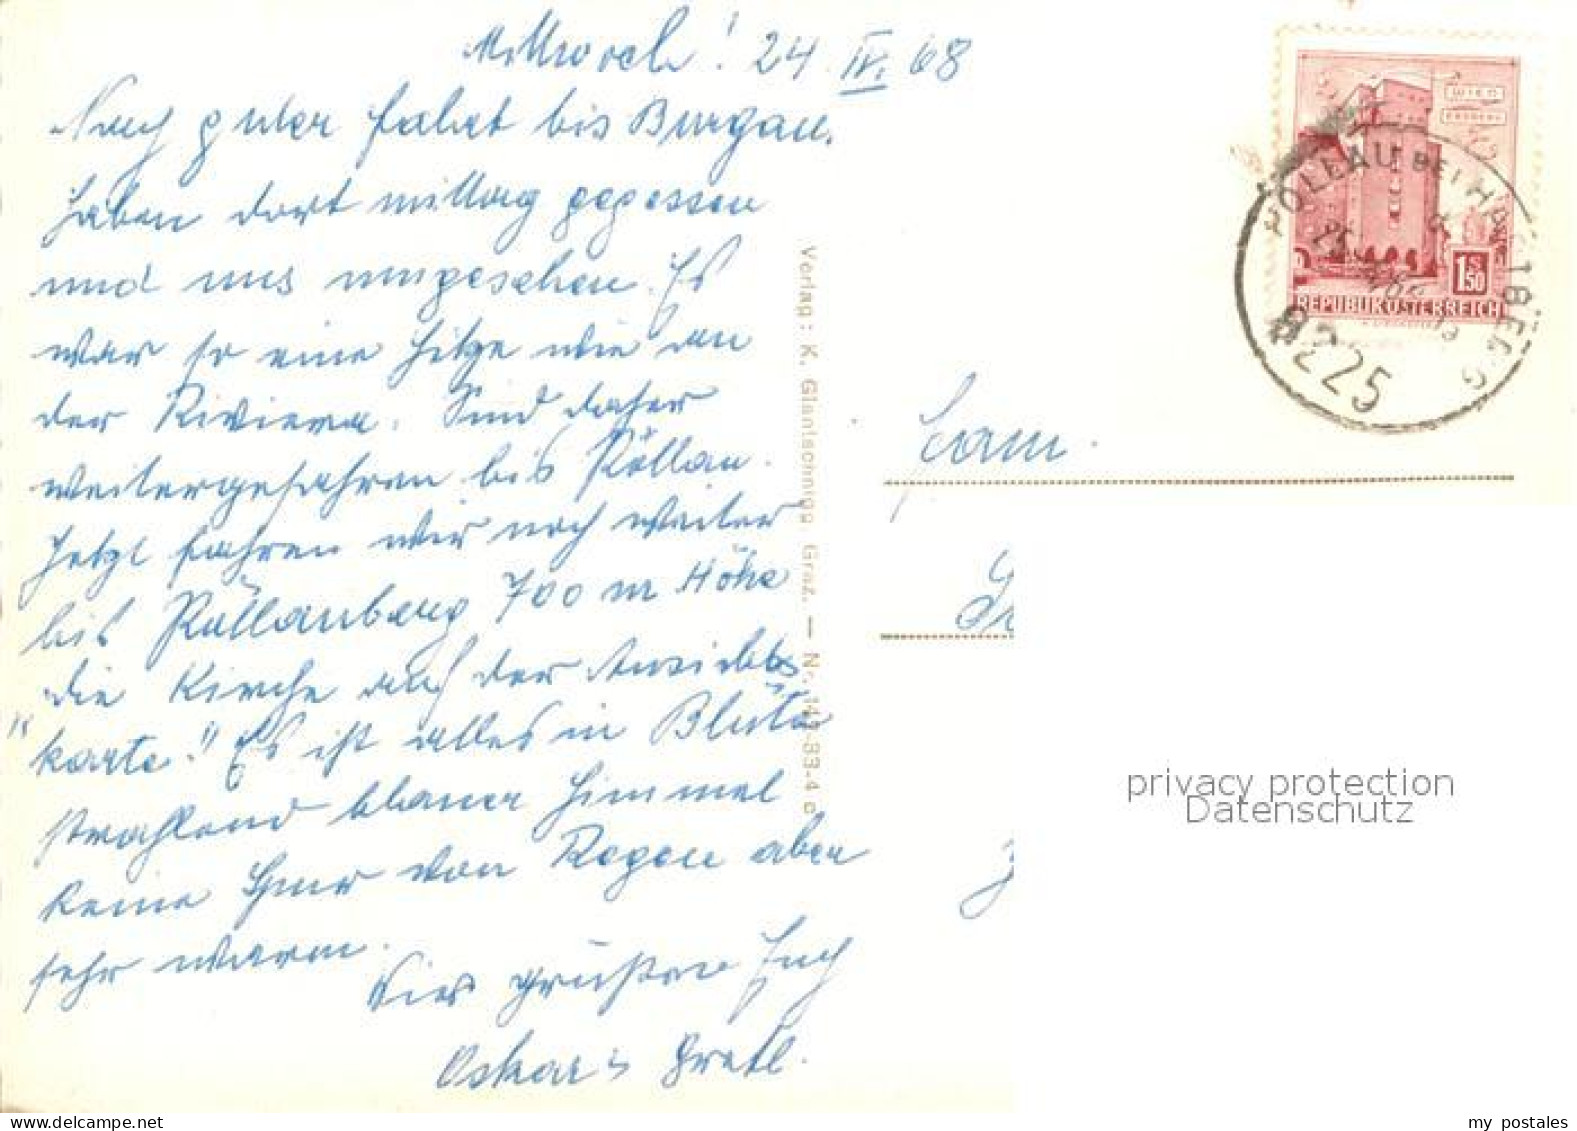 Mittwoch! 24 IV. 68
Nach guter Fahrt bis Burgau.
haben dort mittag gegessen
und uns umgesehen. Es
war so eine Hitze wie an
der Riviera. Sind daher
weitergefahren bis Pöllau.
Jetzt fahren wir noch weiter
bis Pöllauberg 700 m Höhe
die Kirche auf der Ansichts
"karte." Es ist alles in Blüte
strahlend blauer Himmel
keine Spur von Regen aber
sehr warm.
Wir grüßen Euch
Oskar u Gretl.
Verlag: K. Glantschnigg, Graz. —
WIEN
ERDBERG
1 S 50
REPUBLIK ÖSTERREICH
PÖLLAU BEI HARTBERG
8225
Fam.
privacy protection
Datenschutz
my-postcards.delcampe.net
my postales